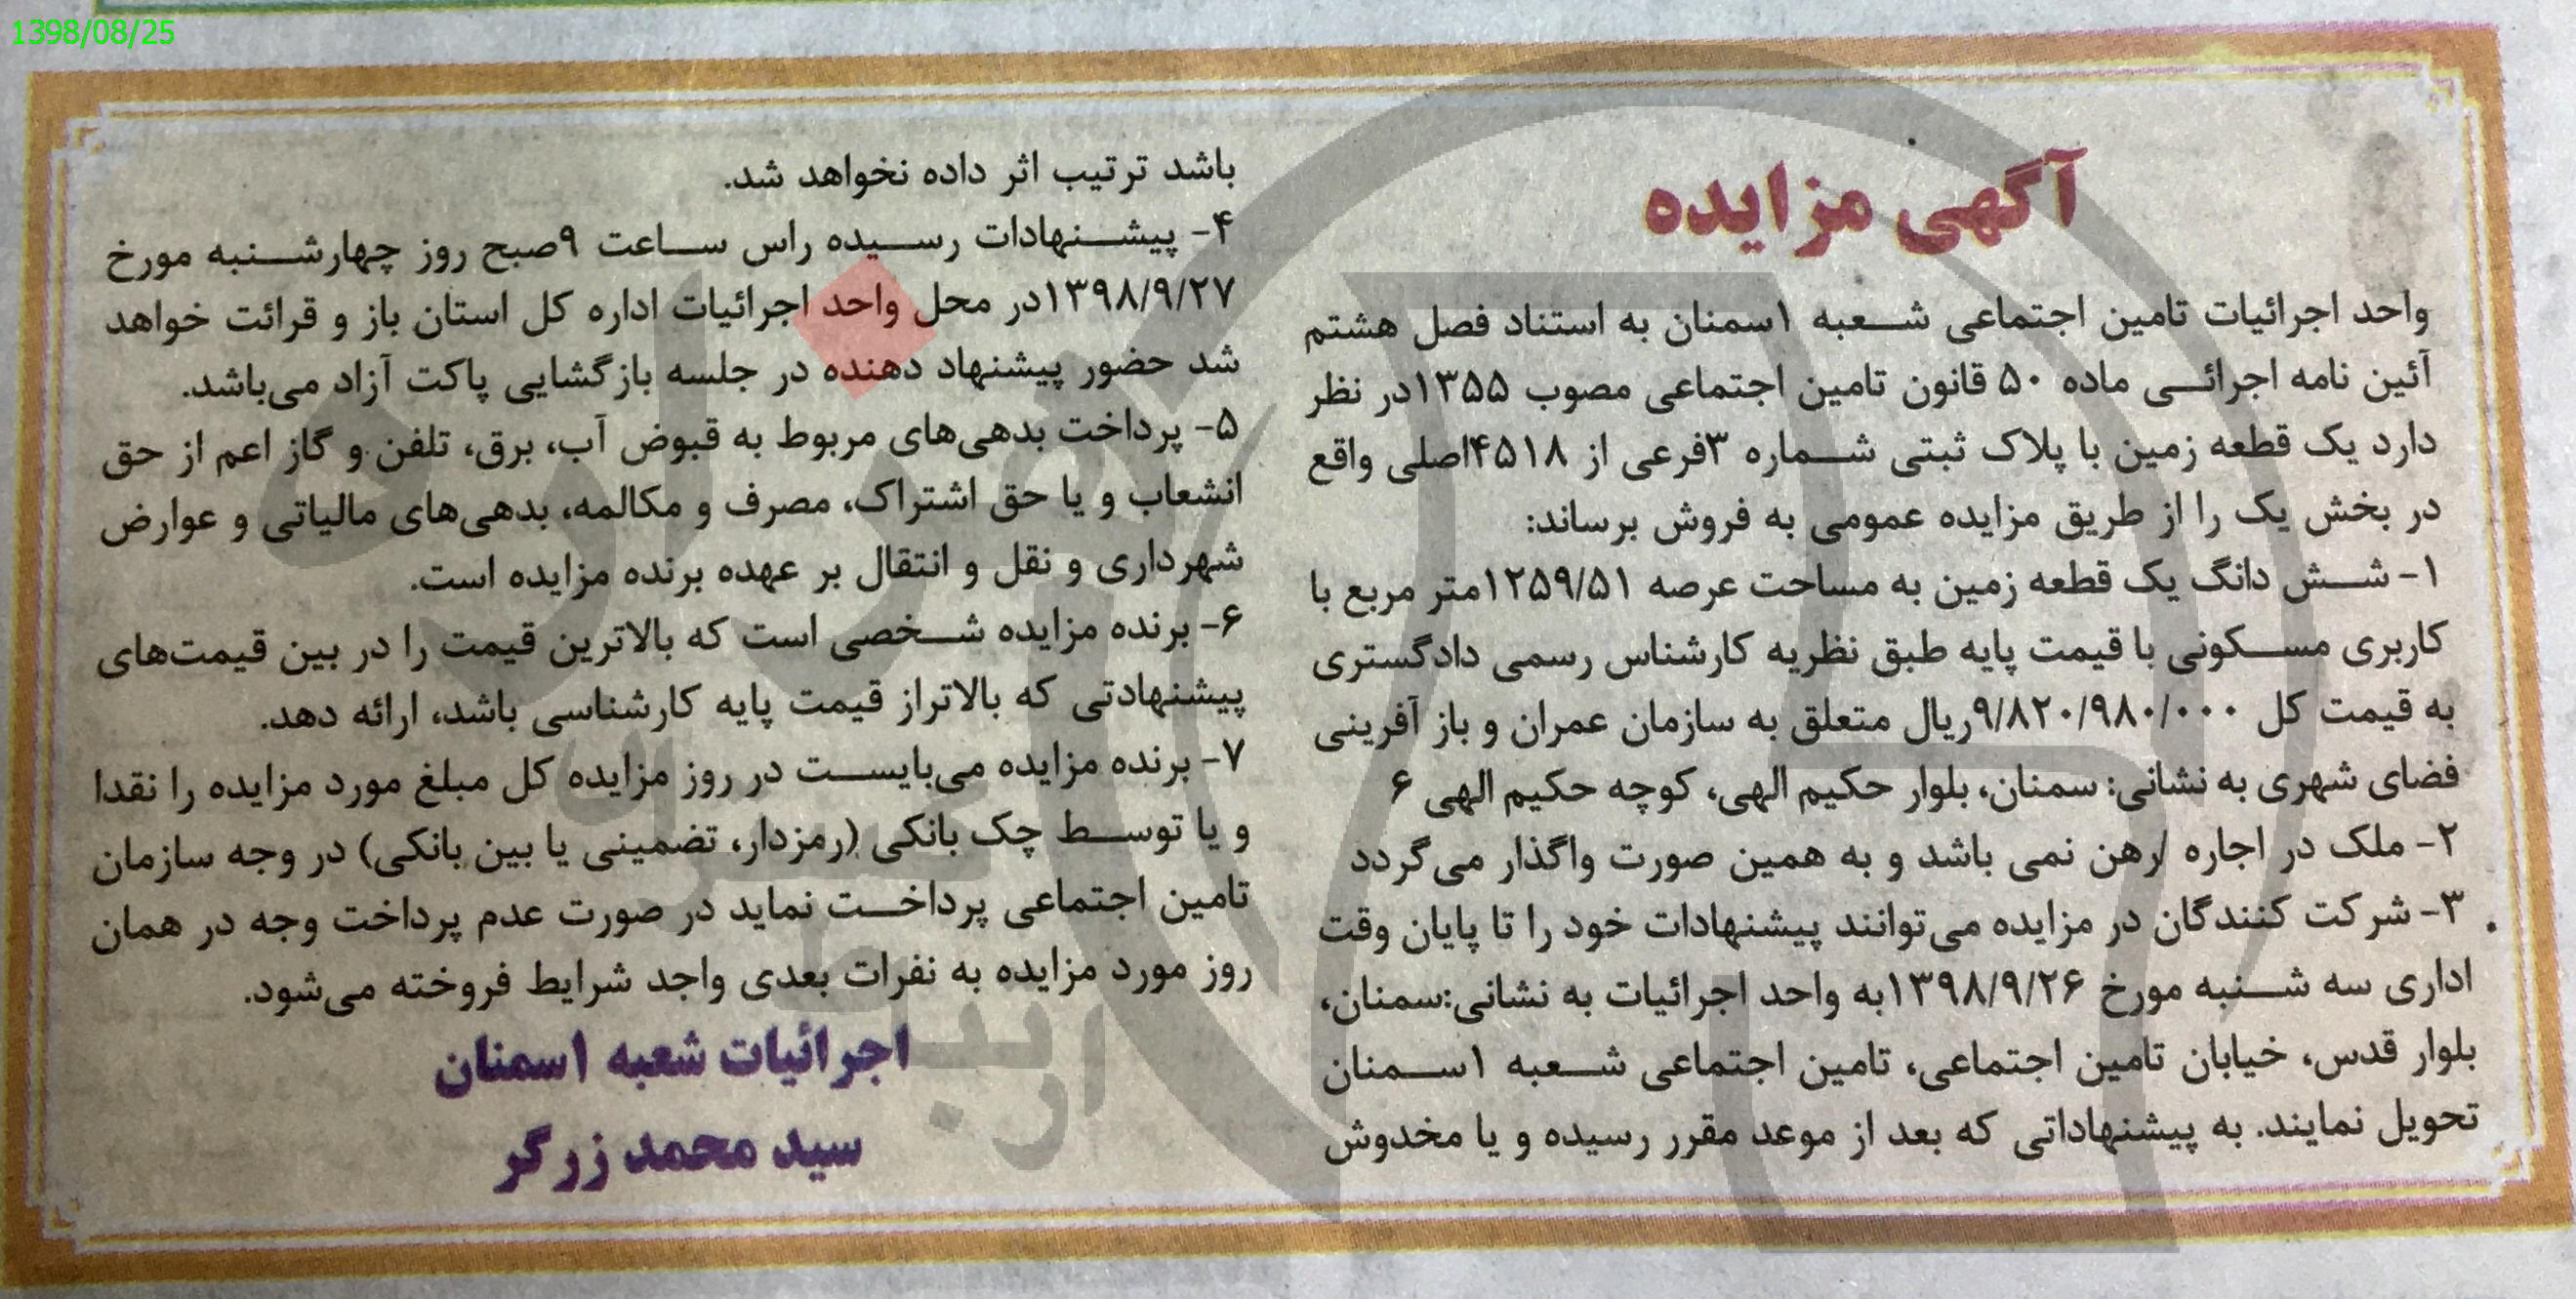 1398/08/25
آگهی مزایده
واحد اجرائیات تامین اجتماعی شعبه ۱سمنان به استناد فصل هشتم
آئین نامه اجرائی ماده ۵۰ قانون تامین اجتماعی مصوب ۱۳۵۵در نظر
دارد یک قطعه زمین با پلاک ثبتی شماره ۳فرعی از ۴۵۱۸اصلی واقع
در بخش یک را از طریق مزایده عمومی به فروش برساند:
۱- شش دانگ یک قطعه زمین به مساحت عرصه ۱۲۵۹/۵۱متر مربع با
کاربری مسکونی با قیمت پایه طبق نظریه کارشناس رسمی دادگستری
به قیمت کل ۹/۸۲۰/۹۸۰/۰۰۰ریال متعلق به سازمان عمران و باز آفرینی
فضای شهری به نشانی: سمنان، بلوار حکیم الهی، کوچه حکیم الهی ۶
۲- ملک در اجاره /رهن نمی باشد و به همین صورت واگذار می‌گردد
۳- شرکت کنندگان در مزایده می‌توانند پیشنهادات خود را تا پایان وقت
اداری سه شنبه مورخ ۱۳۹۸/۹/۲۶به واحد اجرائیات به نشانی:سمنان،
بلوار قدس، خیابان تامین اجتماعی، تامین اجتماعی شعبه ۱سمنان
تحویل نمایند. به پیشنهاداتی که بعد از موعد مقرر رسیده و یا مخدوش
باشد ترتیب اثر داده نخواهد شد.
۴- پیشنهادات رسیده راس ساعت ۹صبح روز چهارشنبه مورخ
۱۳۹۸/۹/۲۷در محل واحد اجرائیات اداره کل استان باز و قرائت خواهد
شد حضور پیشنهاد دهنده در جلسه بازگشایی پاکت آزاد می‌باشد.
۵- پرداخت بدهی‌های مربوط به قبوض آب، برق، تلفن و گاز اعم از حق
انشعاب و یا حق اشتراک، مصرف و مکالمه، بدهی‌های مالیاتی و عوارض
شهرداری و نقل و انتقال بر عهده برنده مزایده است.
۶- برنده مزایده شخصی است که بالاترین قیمت را در بین قیمت‌های
پیشنهادتی که بالاتراز قیمت پایه کارشناسی باشد، ارائه دهد.
۷- برنده مزایده می‌بایست در روز مزایده کل مبلغ مورد مزایده را نقدا
و یا توسط چک بانکی (رمزدار، تضمینی یا بین بانکی) در وجه سازمان
تامین اجتماعی پرداخت نماید در صورت عدم پرداخت وجه در همان
روز مورد مزایده به نفرات بعدی واجد شرایط فروخته می‌شود.
اجرائیات شعبه ۱سمنان
سید محمد زرگر